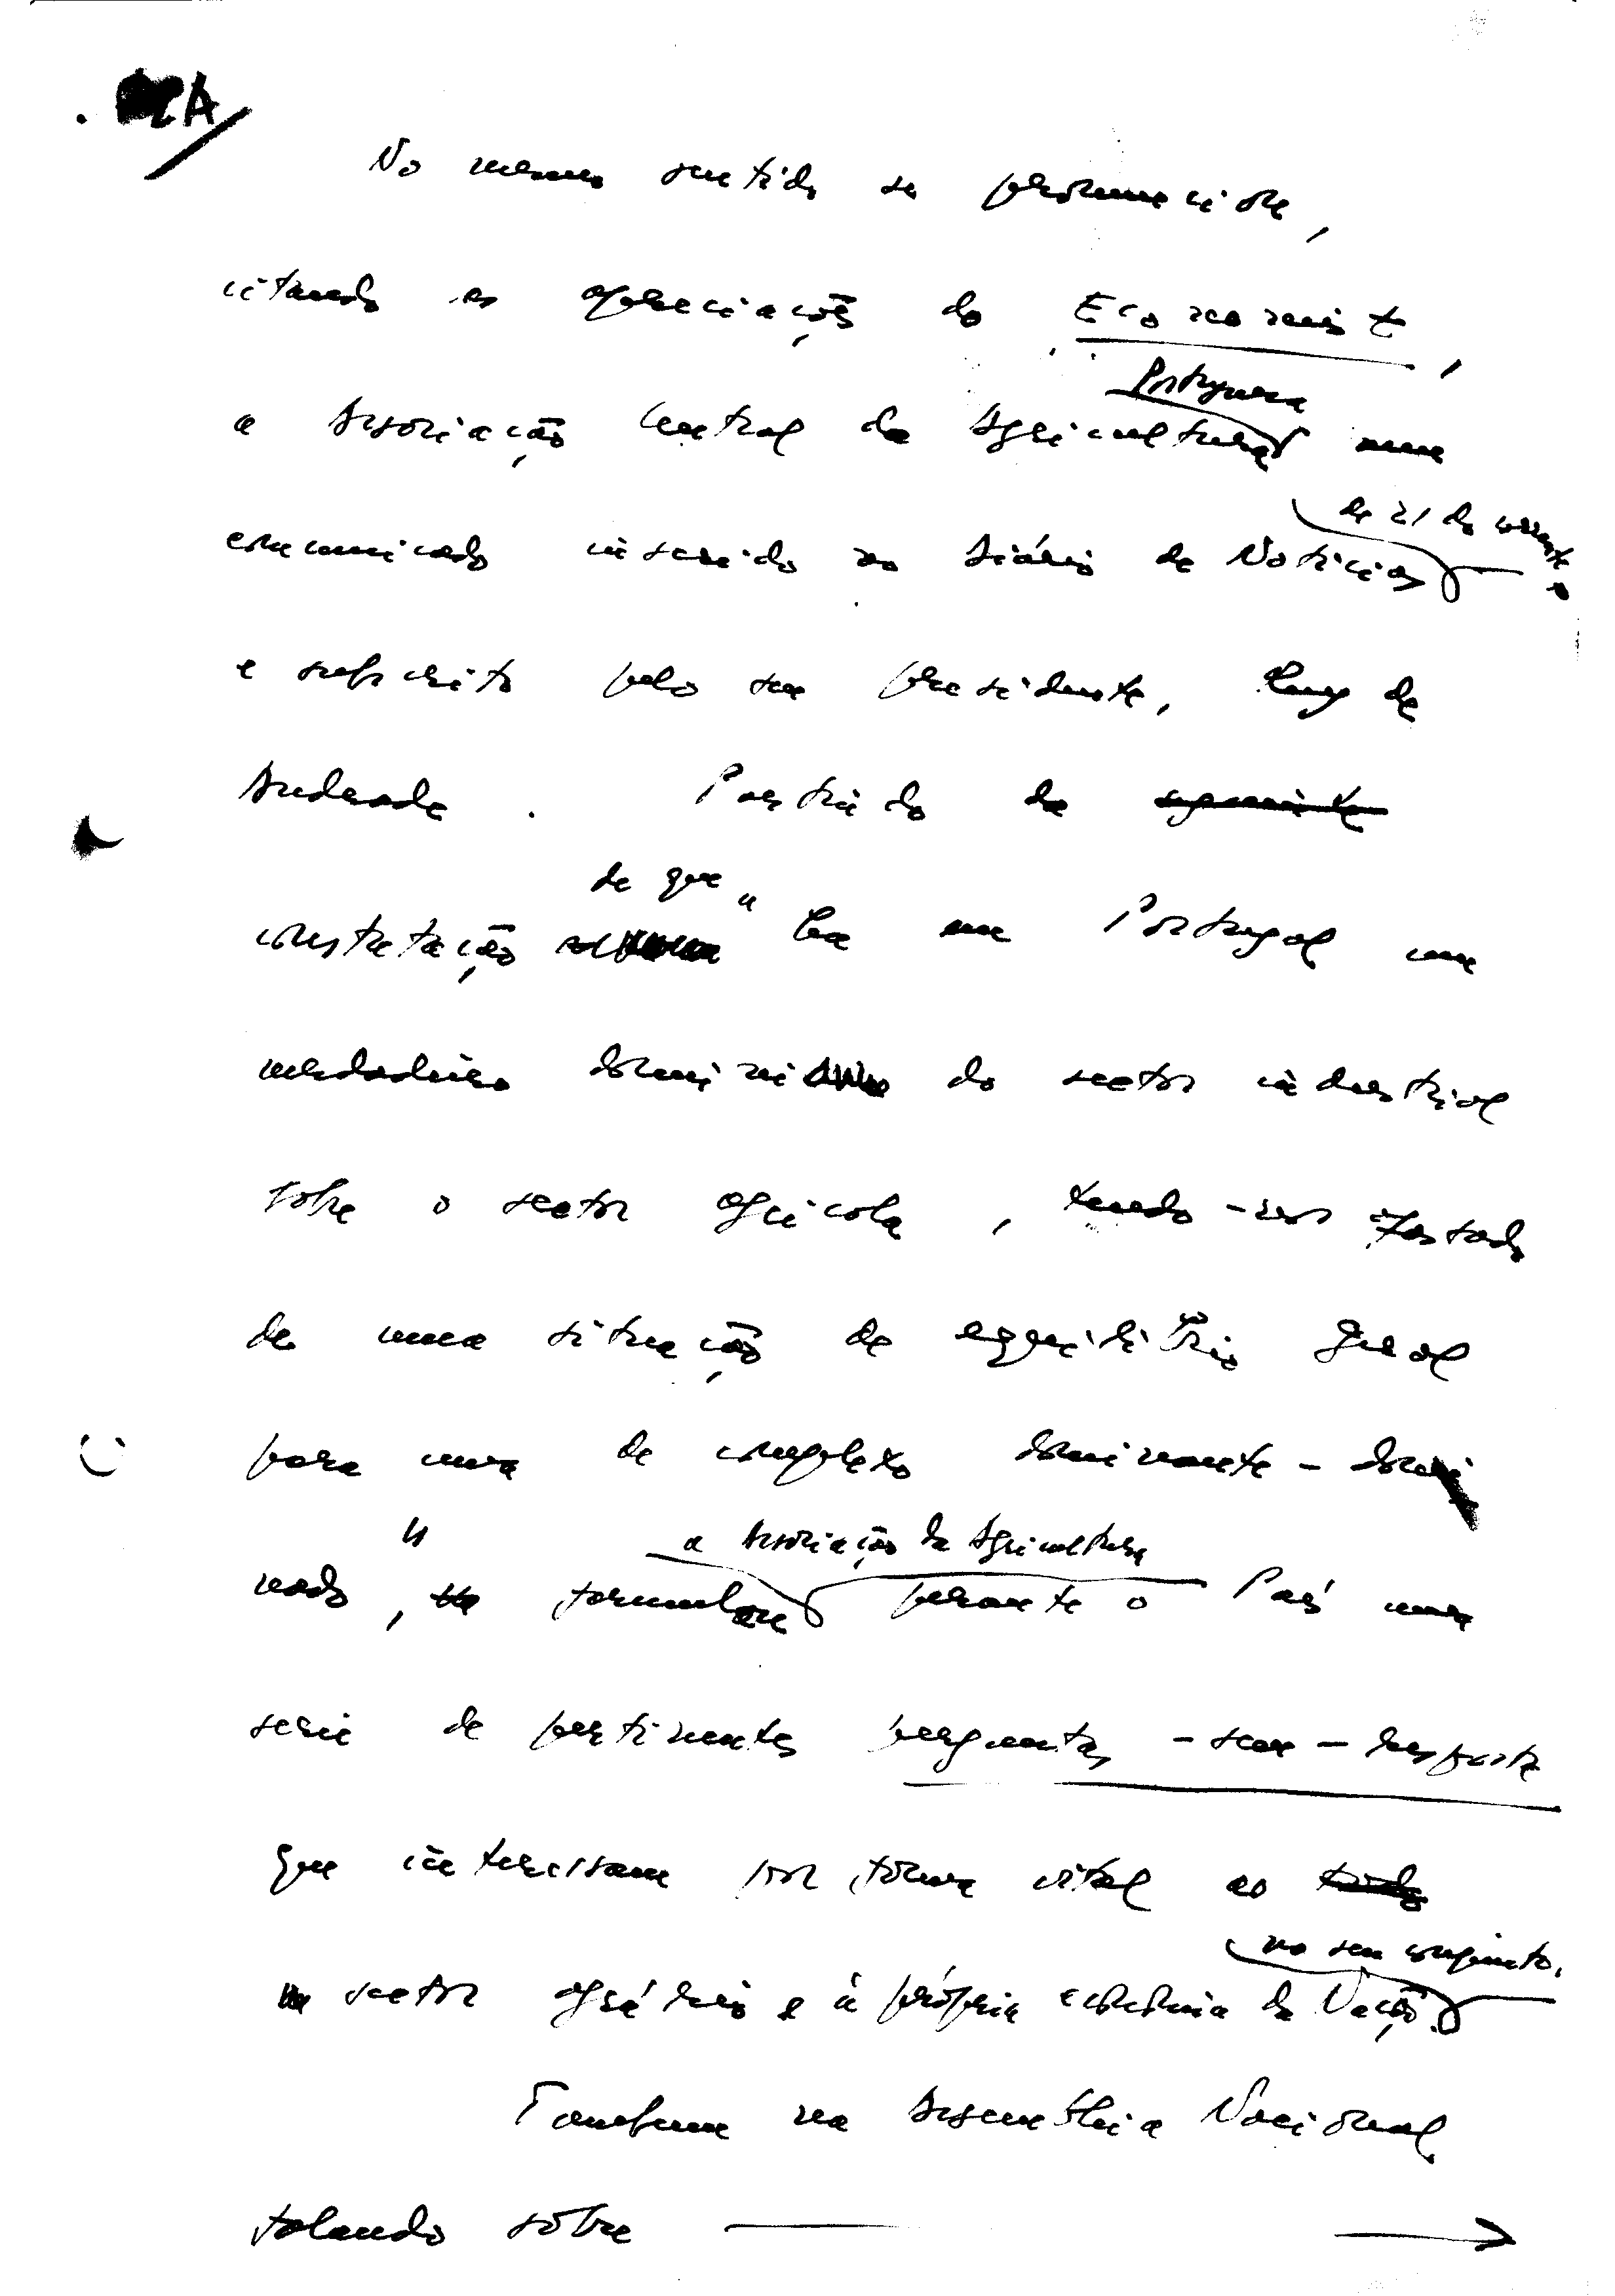 A
No mesmo sentido se pronunciou,
citando as apreciações do Economist,
Portuguesa
a Associação Central da Agricultura num
de 21 do corrente
comunicado inserido no Diário de Notícias
e subscrito pelo seu presidente, Ruy de
Andrade. Partindo da
de que "
constatação há em Portugal um
verdadeiro domínio do sector industrial
sobre o sector agrícola, tendo-nos afastado
de uma situação de equilíbrio geral
para uma de complexo dominante-domi
" a Associação da Agricultura
nado, formulou perante o País uma
serie de pertinentes perguntas-sem-resposta
que interessam por forma vital ao
no seu conjunto.
sector agrário e à própria economia da Nação
Também na Assembleia Nacional,
falando sôbre